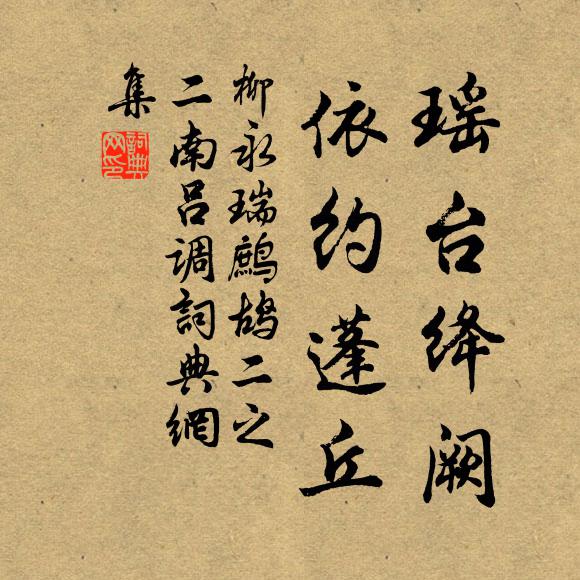 瑶台绛阙
依约蓬丘
柳永瑞鹧鸪二之
二南吕调詞典網
集
詞典
网印